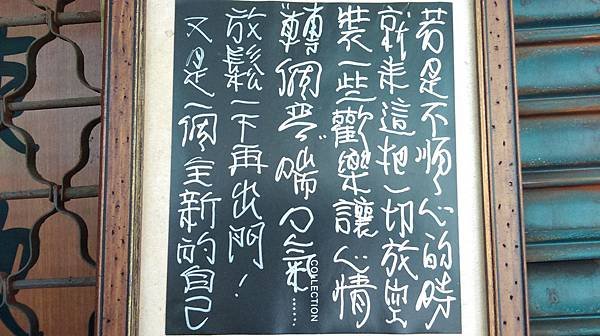 若是不順心的時
就來這把一切放空
裝一些歡樂讓心情
轉個彎喘口氣……
放鬆一下再出門！
又是一個全新的自己
COLLECTION